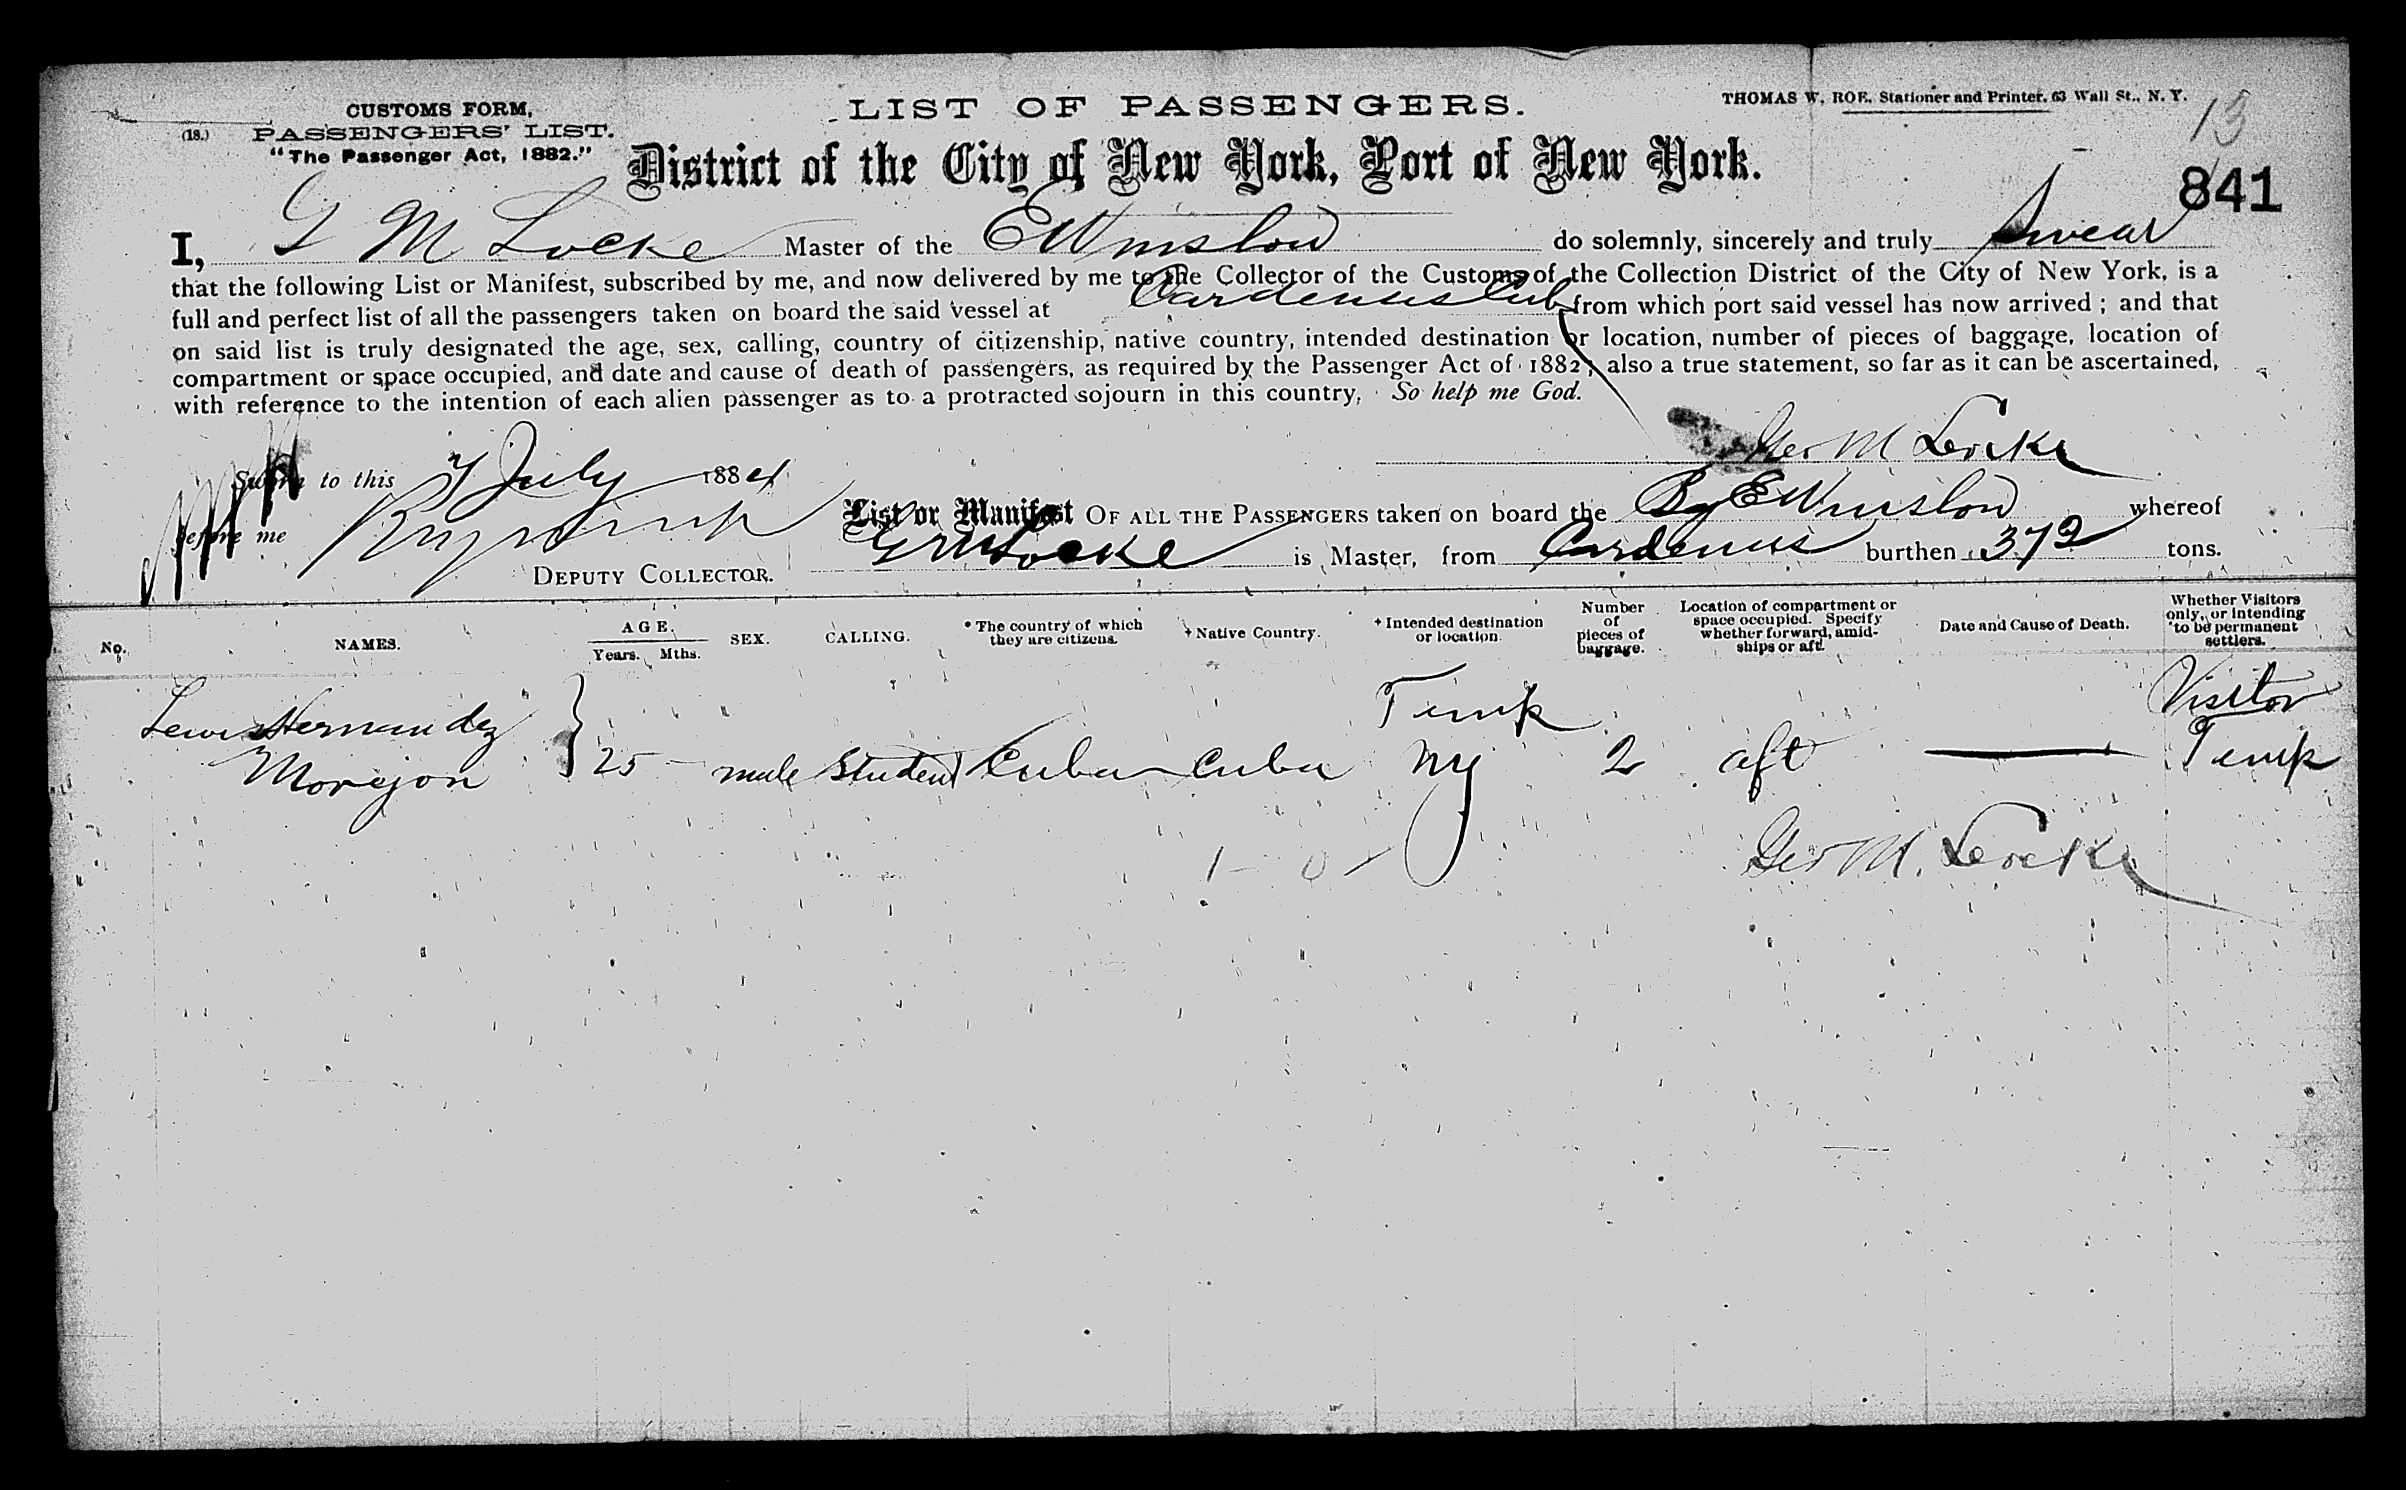 CUSTOMS FORM,
(18.) PASSENGERS' LIST.
"The Passenger Act, 1882."
LIST OF PASSENGERS.
THOMAS W. ROE, Stationer and Printer, 63 Wall St., N. Y.
13
District of the City of New York, Port of New York.
841
I, G M Locke Master of the E Winslow do solemnly, sincerely and truly Swear
that the following List or Manifest, subscribed by me, and now delivered by me to the Collector of the Customs of the Collection District of the City of New York, is a
full and perfect list of all the passengers taken on board the said vessel at Cardenas Cub from which port said vessel has now arrived ; and that
on said list is truly designated the age, sex, calling, country of citizenship, native country, intended destination or location, number of pieces of baggage, location of
compartment or space occupied, and date and cause of death of passengers, as required by the Passenger Act of 1882 ; also a true statement, so far as it can be ascertained,
with reference to the intention of each alien passenger as to a protracted sojourn in this country, So help me God.
Geo M Locke
Sworn to this 7 July 1884
before me
DEPUTY COLLECTOR.
List or Manifest OF ALL THE PASSENGERS taken on board the Bg E Winslow whereof
G M Locke is Master, from Cardenas burthen 372 tons.
No. NAMES. AGE. Years. Mths. SEX. CALLING. * The country of which they are citizens. + Native Country. + Intended destination or location. Number of pieces of baggage. Location of compartment or space occupied. Specify whether forward, amidships or aft. Date and Cause of Death. Whether Visitors only, or intending to be permanent settlers.
Lewis Hernandez Temp Visitor
Morejon } 25 — male Student Cuba — Cuba NY 2 aft — Temp
1 — 0
Geo M. Locke